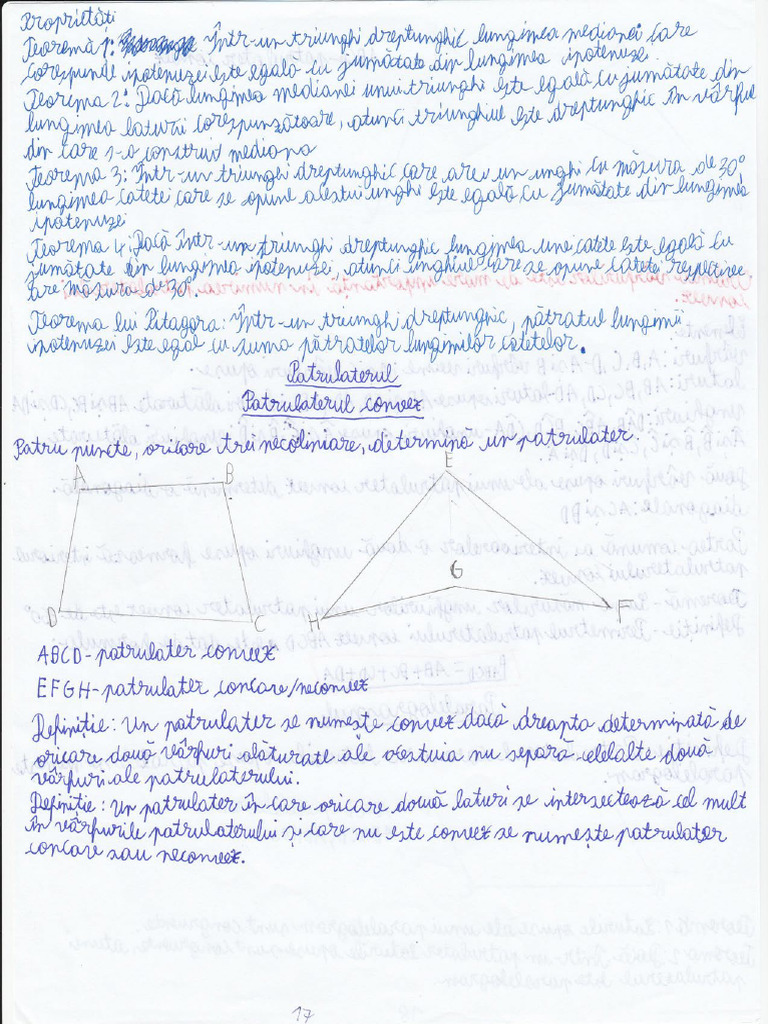 Proprietăți
Teoremă 1: Într-un triunghi dreptunghic lungimea medianei care
corespunde ipotenuzei este egală cu jumătate din lungimea ipotenuzei.
Teorema 2: Dacă lungimea medianei unui triunghi este egală cu jumătate din
lungimea laturii corespunzătoare, atunci triunghiul este dreptunghic în vârful
din care s-a construit mediana
Teorema 3: Într-un triunghi dreptunghic care are un unghi cu măsura de 30°
lungimea catetei care se opune acestui unghi este egală cu jumătate din lungimea
ipotenuzei
Teorema 4: Dacă într-un triunghi dreptunghic lungimea unei catete este egală cu
jumătate din lungimea ipotenuzei, atunci unghiul care se opune catetei respective
are măsura de 30°.
Teorema lui Pitagora: Într-un triunghi dreptunghic, pătratul lungimii
ipotenuzei este egal cu suma pătratelor lungimilor catetelor.
Patrulaterul
Patrulaterul convex
Patru puncte, oricare trei necoliniare, determină un patrulater.
A B E
G
D C H F
ABCD-patrulater convex
EFGH-patrulater concav/neconvex
Definiție: Un patrulater se numește convex dacă dreapta determinată de
oricare două vârfuri alăturate ale acestuia nu separă celelalte două
vârfuri ale patrulaterului.
Definiție: Un patrulater în care oricare două laturi se intersectează cel mult
în vârfurile patrulaterului și care nu este convex se numește patrulater
concav sau neconvex.
17